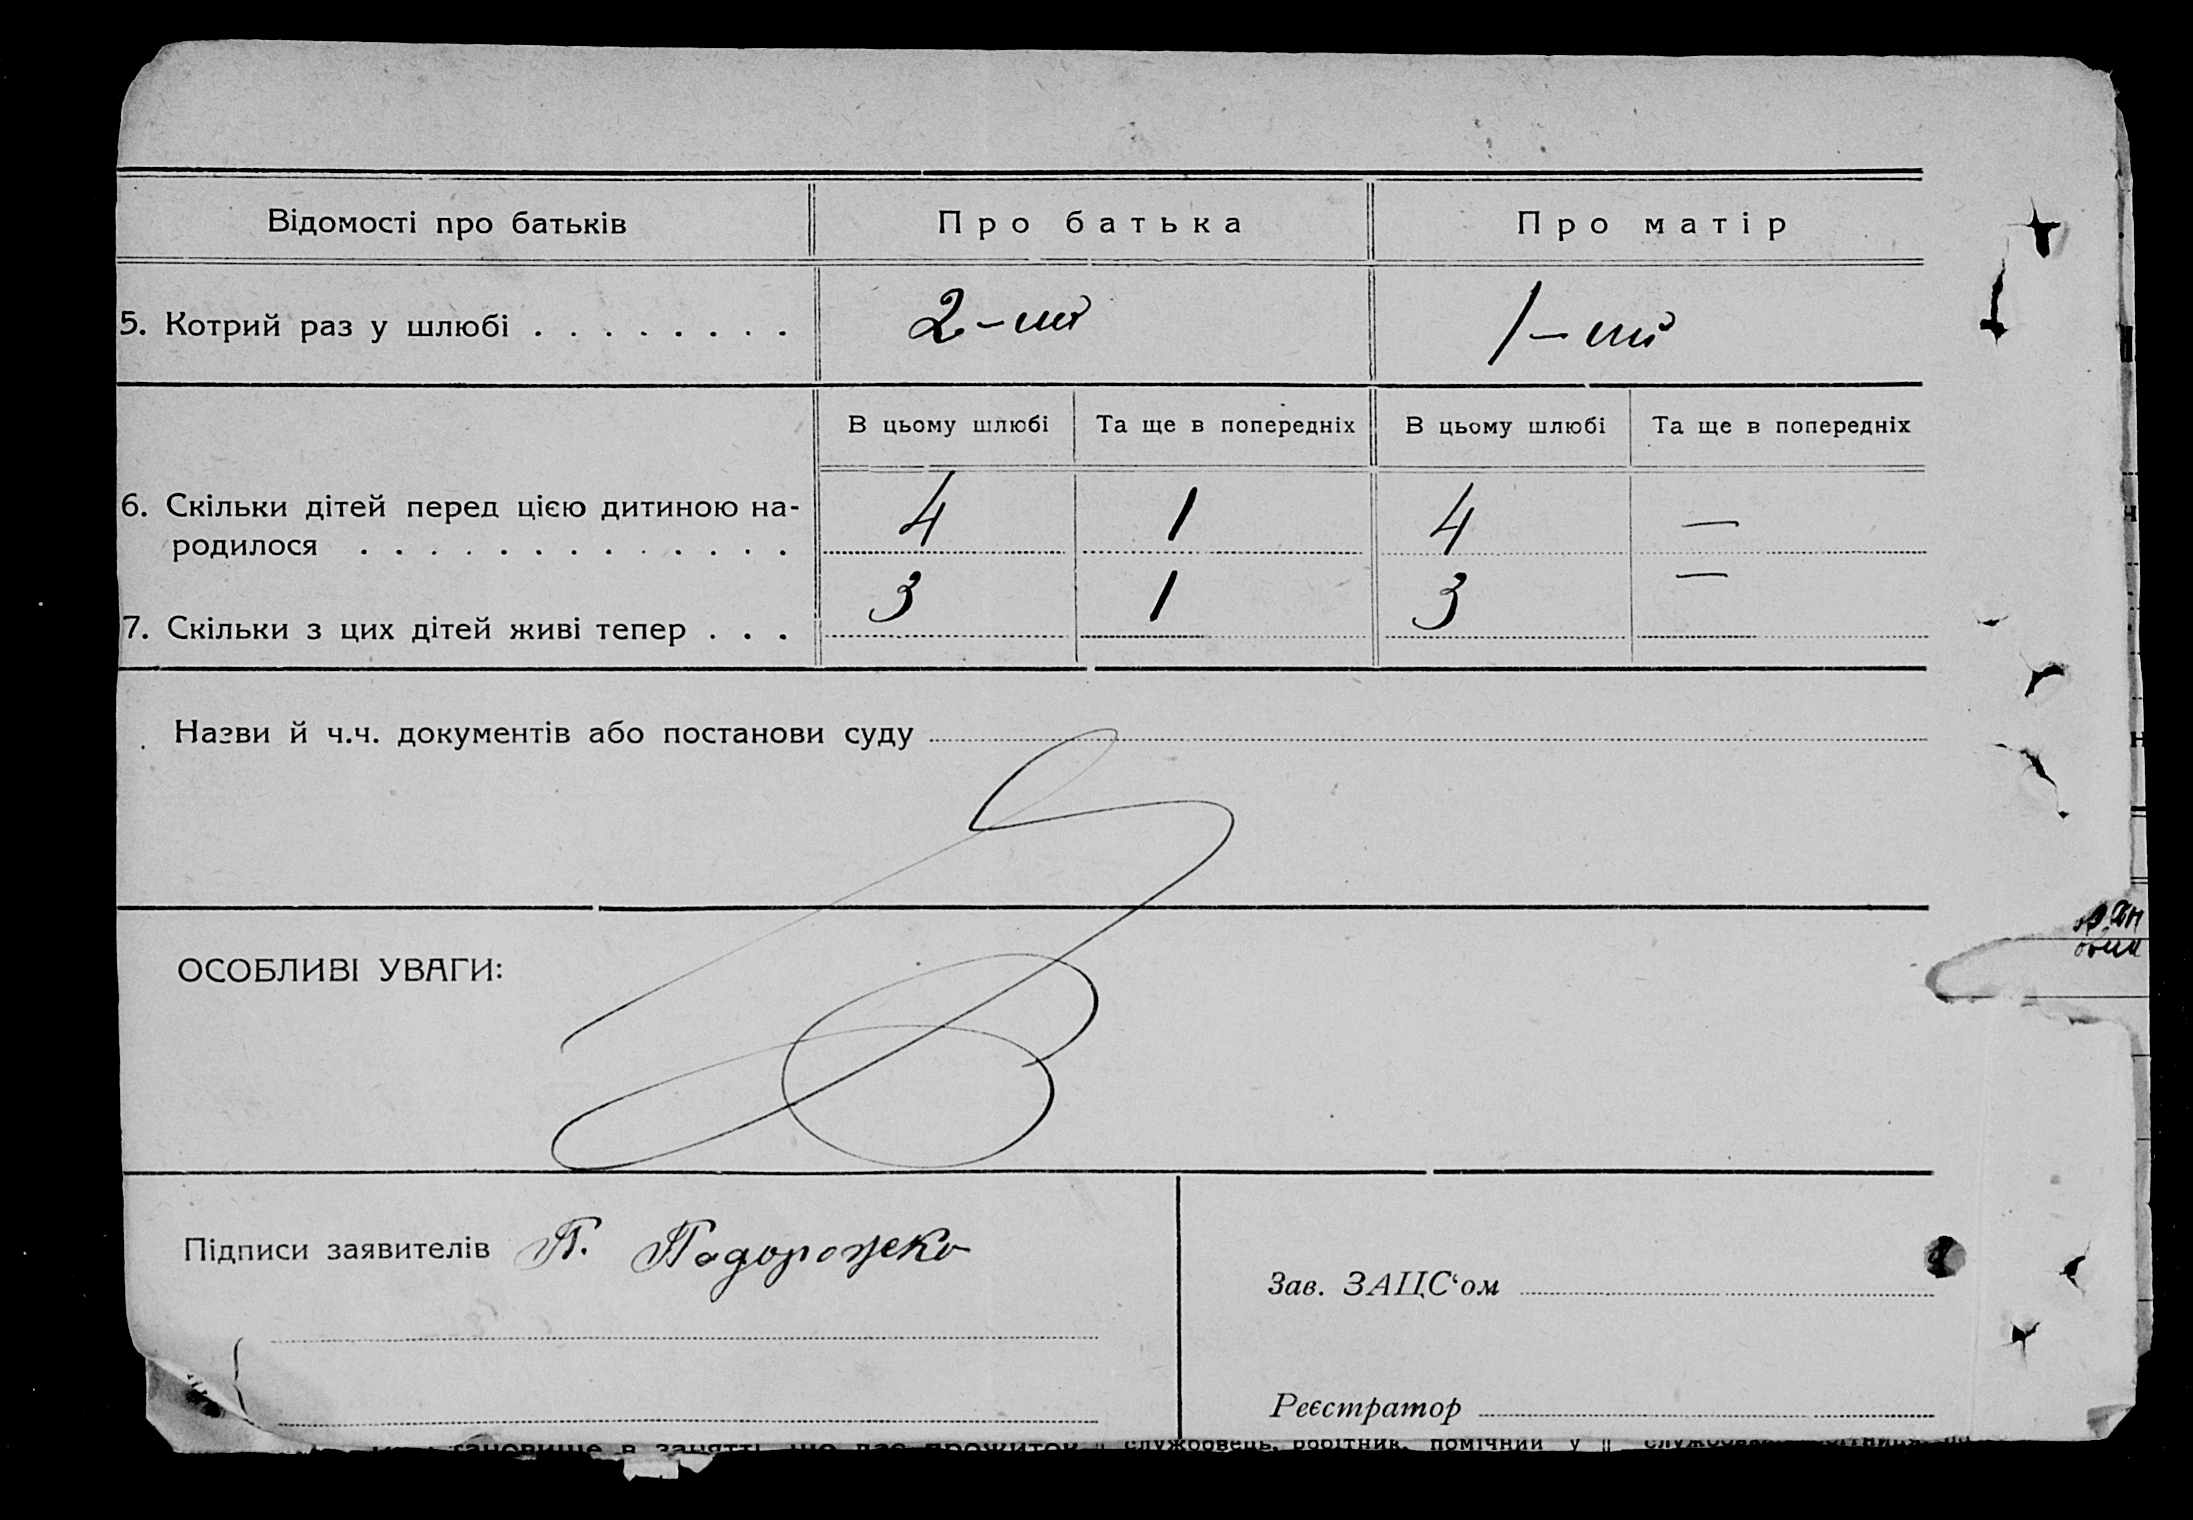 Відомості про батьків Про батька Про матір
5. Котрий раз у шлюбі . . . . . . . . 2-ий 1-ий
В цьому шлюбі Та ще в попередніх В цьому шлюбі Та ще в попередніх
6. Скільки дітей перед цією дитиною на-
родилося . . . . . . . . . . . . . 4 1 4 —
7. Скільки з цих дітей живі тепер . . . 3 1 3 —
Назви й ч.ч. документів або постанови суду
ОСОБЛИВІ УВАГИ:
Підписи заявителів П. Подорожко
Зав. ЗАЦС‘ом
Реєстратор
службовець, робітник, помічний у